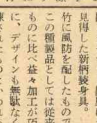 見得した新柄装身具。
竹に風防を配したもので
この種製品としては従来
ものに比べ益々加工が巧
に、デザインも無駄な